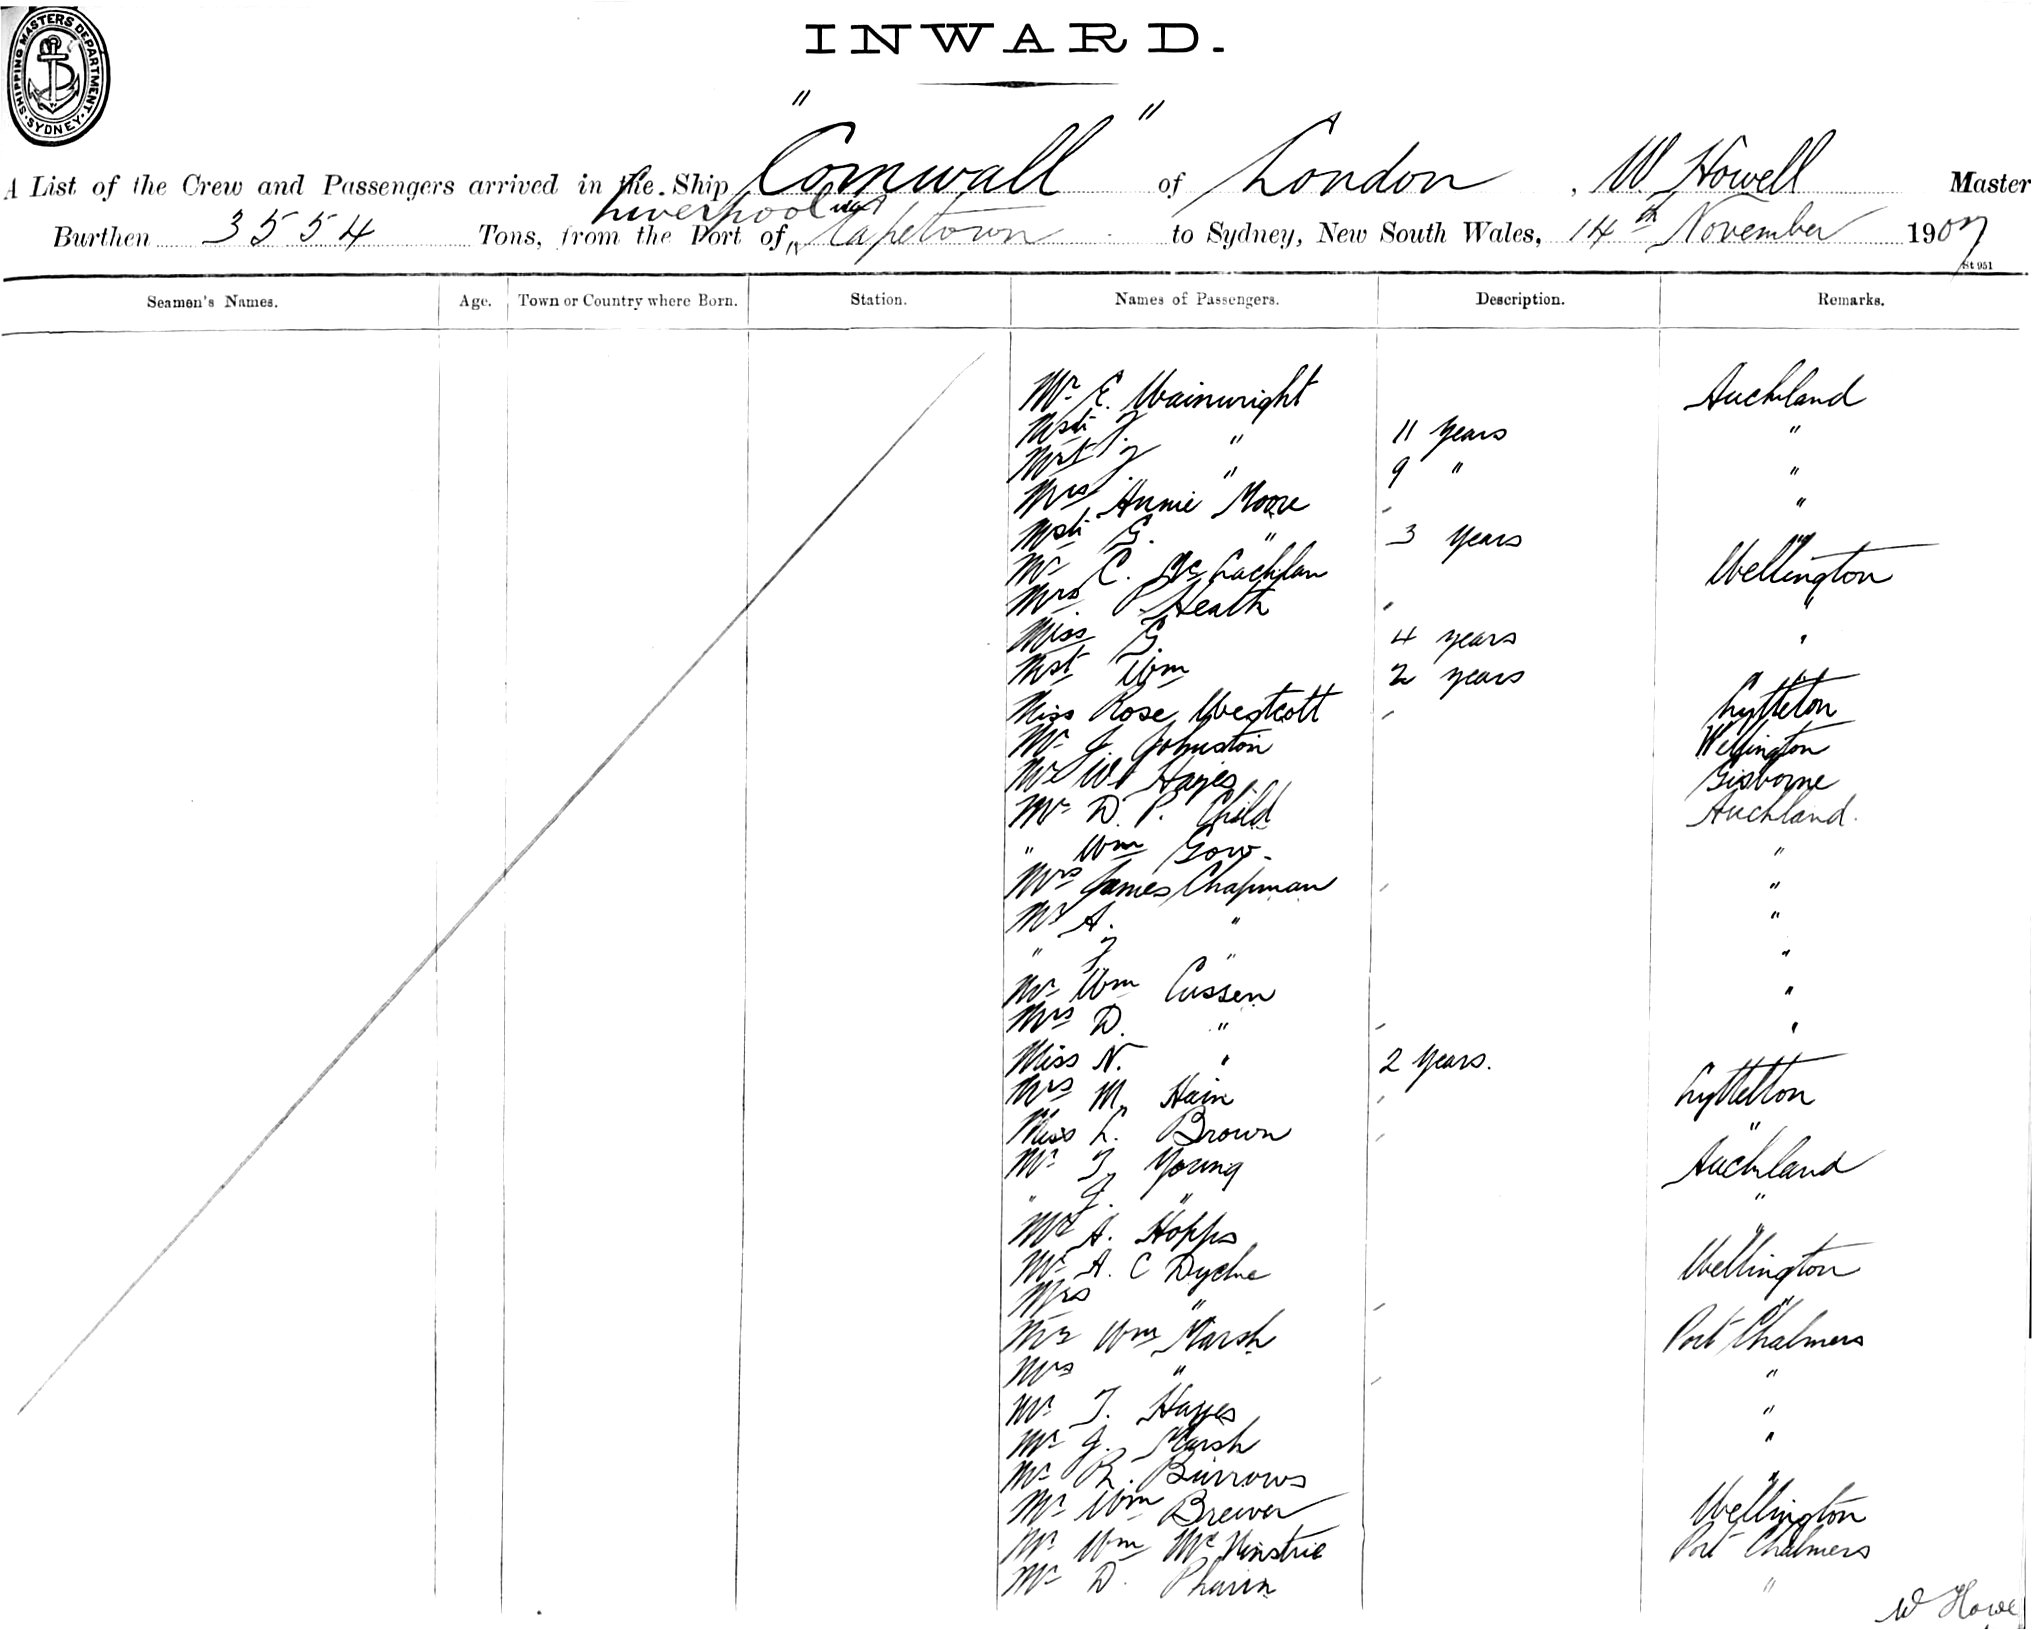 SHIPPING MASTERS DEPARTMENT. SYDNEY.
INWARD.
A List of the Crew and Passengers arrived in the Ship "Cornwall" of London, W. Howell Master
Liverpool via
Burthen 3554 Tons, from the Port of Capetown to Sydney, New South Wales, 14th November 1907
St 951
Seamen's Names. Age. Town or Country where Born. Station. Names of Passengers. Description. Remarks.
Mr E. Wainwright Auckland
Mstr J. " 11 years "
Mst J " 9 " "
Mrs Annie Moore "
Mstr G. " 3 years "
Mr C. McLachlan Wellington
Mrs P. Heath "
Miss G. 4 years "
Mst Wm 2 years "
Miss Rose Westcott Lyttelton
Mr J. Johnston Wellington
Mr W Hayes Gisborne
Mr D. P. Child Auckland.
" Wm Gow. "
Mrs James Chapman "
Mr A. " "
" J " "
Mr Wm Cussen "
Mrs D. " "
Miss N. " 2 years.
Mrs M. Hain Lyttelton
Miss L. Brown "
Mr T. Young Auckland
" J. " "
Mr A. Hopps "
Mr A. C Dyche Wellington
Mrs " "
Mr Wm Marsh Port Chalmers
Mrs " "
Mr T. Hayes "
Mr J. Marsh "
Mr R. Burrows "
Mr Wm Brewer Wellington
Mr Wm McKinstrie Port Chalmers
Mr D. "
W Howe